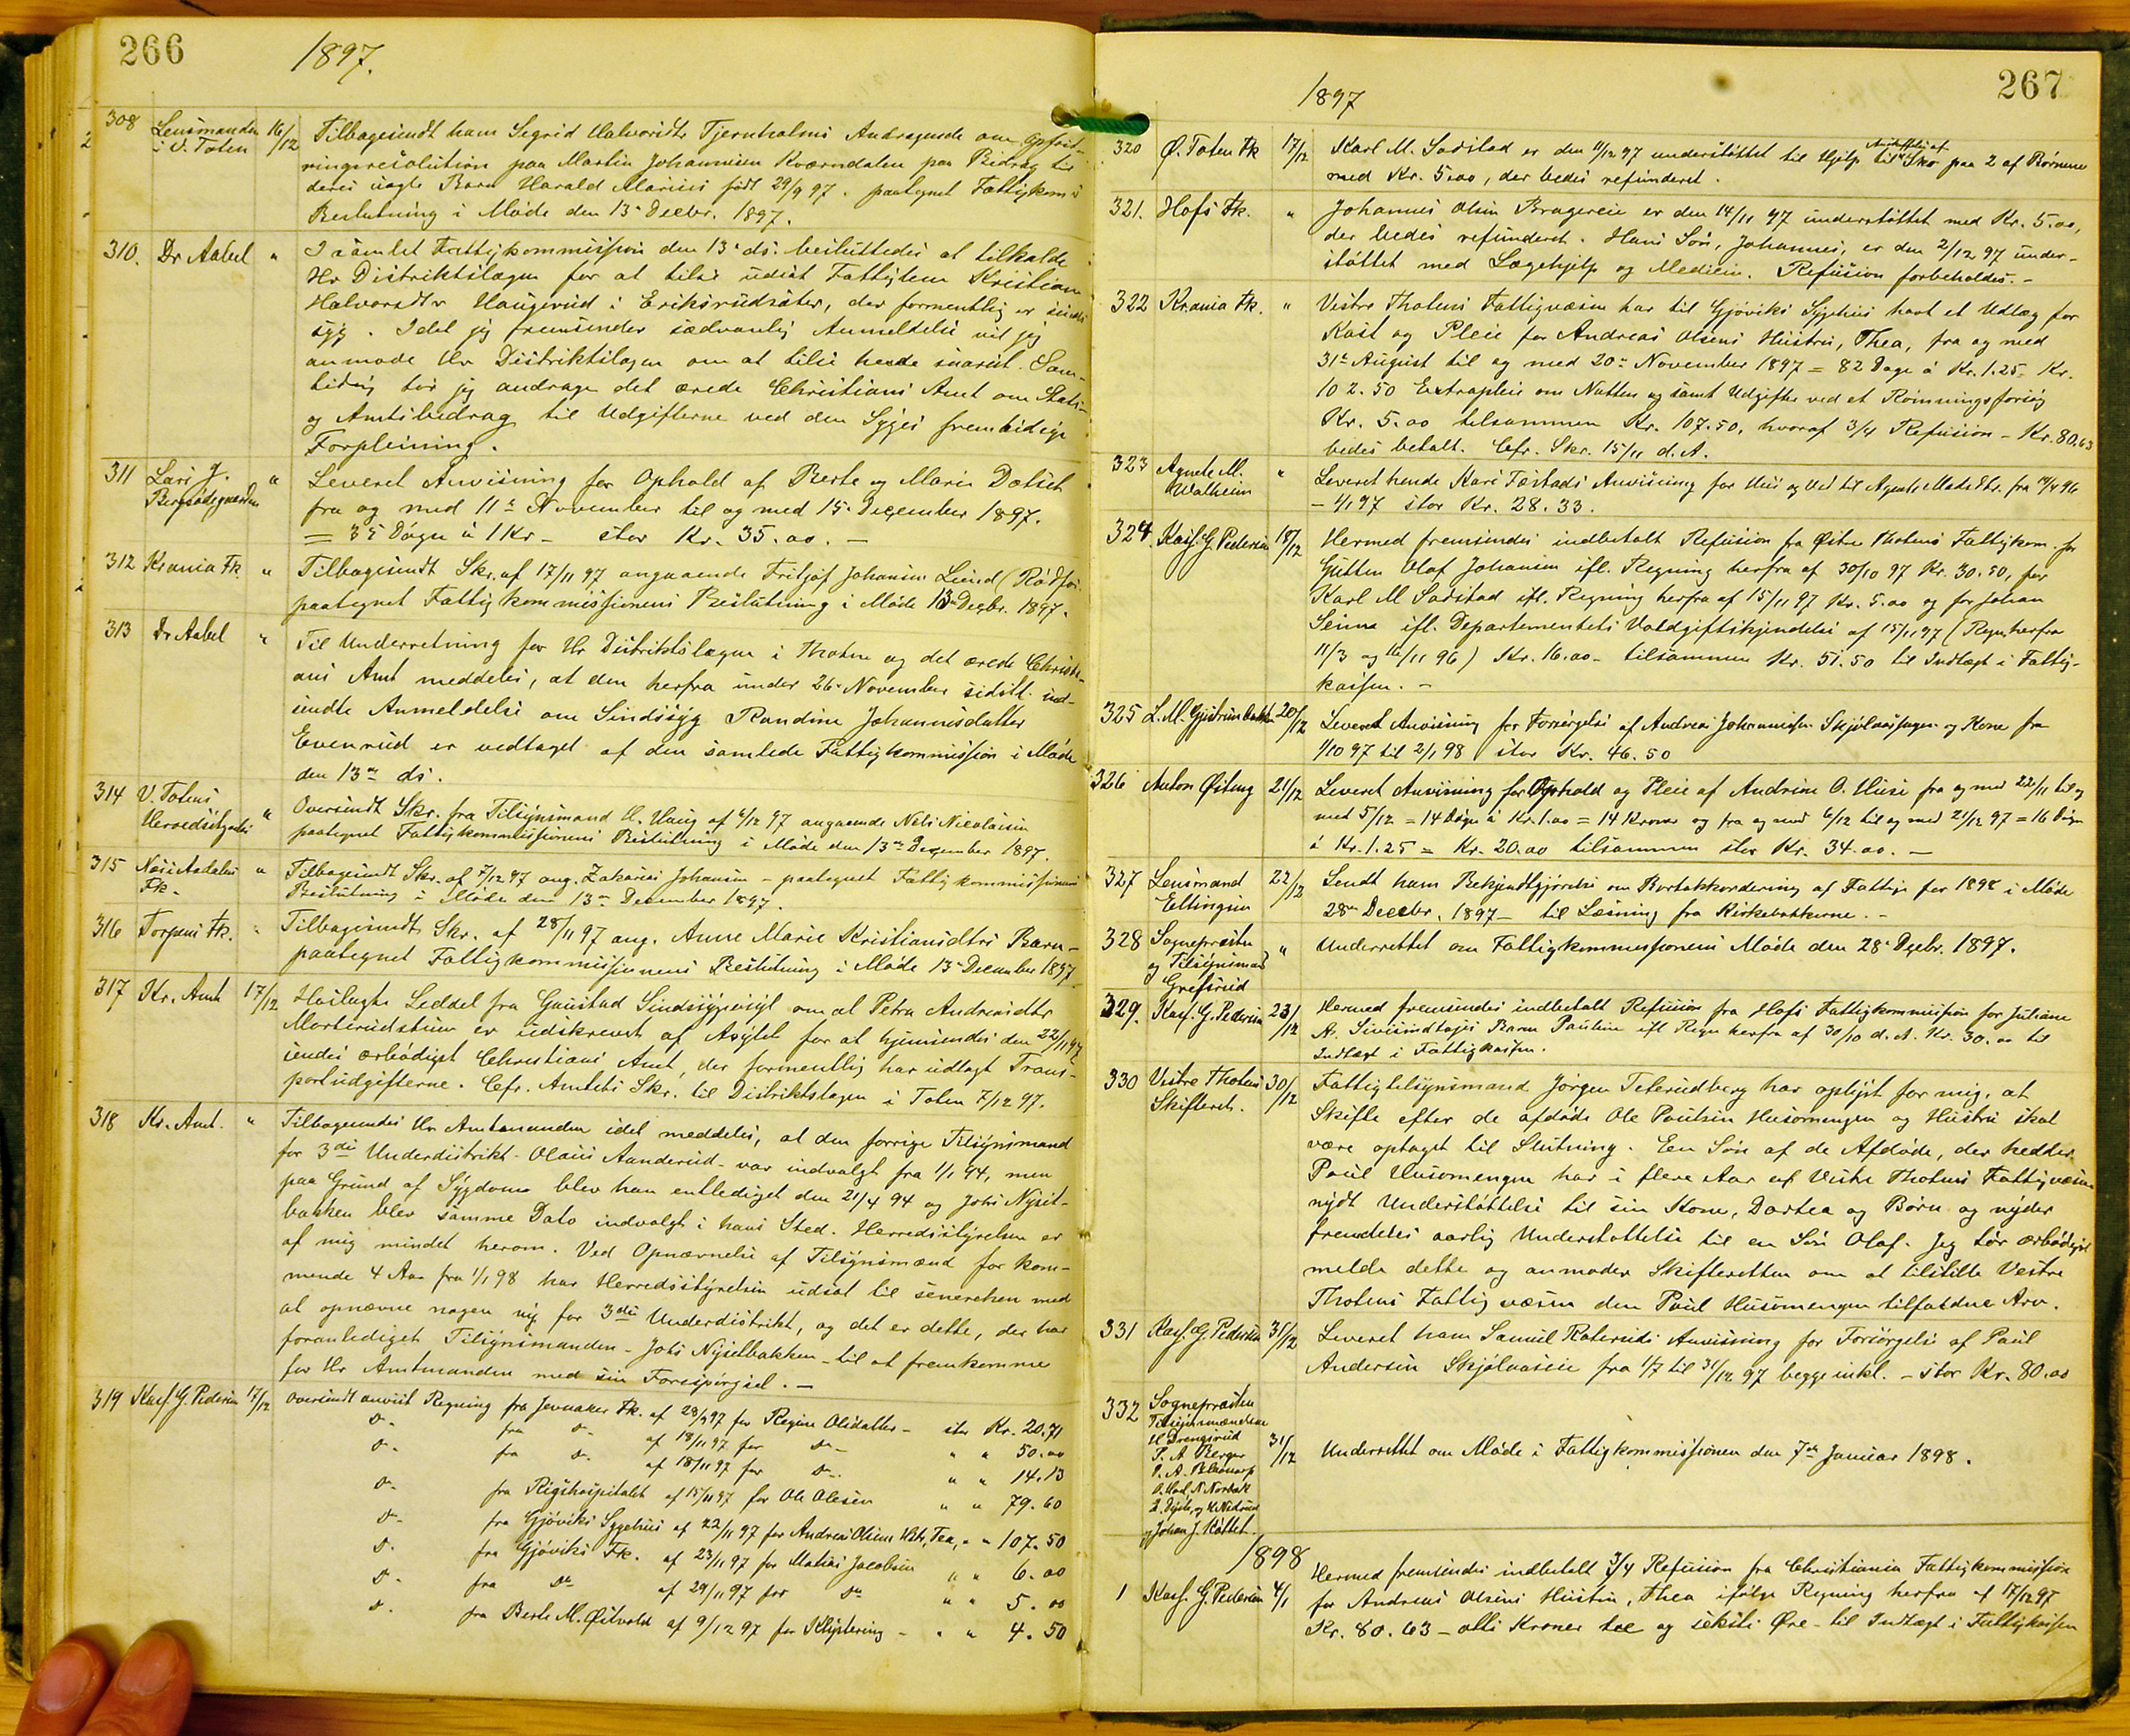 266
1897.
308 Lensmanden i V. Toten 16/12 Tilbagesendt ham Sigrid Halvorsdtr Tjernholms Andragende om Opfost-
ringsresolution paa Martin Johannesen Kværndalen paa Bidrag til
deres uægte Barn Harald Marius født 29/9 97. paategnet Fattigkom's
Beslutning i Møde den 13 Decbr. 1897.
310. Dr Aabel " I samlet Fattigkommission den 13' ds. besluttedes at tilkalde
Hr Distriktslægen for at tilse udsat Fattiglem Kristiane
Halvorsdtr Haugerud i Eriksrudsæter, der formentlig er sinds
syg. Idet jeg fremsender sædvanlig Anmeldelse vil jeg
anmode Hr Distriktslægen om at tilse hende snarest. Sam-
tidig tør jeg andrage det ærede Christians Amt om Stats-
og Amtsbidrag til Udgifterne ved den Syges fremtidige
Forpleining.
311 Lars J. Bergsodegaarden " Leveret Anvisning for Ophold af Berte og Marie Dotset
fra og med 11te November til og med 15. December 1897.
= 35 Døgn à 1 Kr - stor Kr. 35.00. -
312 Krania Fk " Tilbagesendt Skr. af 17/11 97 angaaende Fritjof Johansen Lund (Rødfos.
paategnet Fattigkommissionens Beslutning i Møde 13 Decbr. 1897.
313 Dr Aabel " Til Underretning for Hr Distriktslægen i Thoten og det ærede Christi-
ans Amt meddeles, at den herfra under 26' November sidstl. ind-
sendte Anmeldelse om Sindssyg Randine Johannesdatter
Evenrud er vedtaget af den samlede Fattigkommission i Møde
den 13de ds.
314 V. Totens Herredsstyrelse " Oversendt Skr. fra Tilsynsmand H. Haug af 4/12 97 angaaende Nils Nicolaisen
paategnet Fattigkommissionens Beslutning i Møde den 13de December 1897.
315 Næs i Aadalens Fk. " Tilbagesendt Skr. af 7/12 97 ang. Zakarias Johansen - paategnet Fattigkommissionens
Beslutning i Møde den 13de December 1897.
316 Torpens Fk. " Tilbagesendt Skr. af 28/11 97 ang. Anne Marie Kristiansdtrs Barn -
paategnet Fattigkommissionens Beslutning i Møde 13' December 1897.
317 Kr. Amt 17/12 Hoslagte Seddel fra Gaustad Sindssygeasyl om at Petra Andreasdtr
Marterudstuen er udskrevet af Asylet for at hjemsendes den 22/11 97
sendes ærbødigst Christians Amt, der formentlig har udlagt Trans-
portudgifterne. Cfr. Amtets Skr. til Distriktslægen i Toten 7/12 97.
318 Kr. Amt. " Tilbagesendes Hr Amtmanden idet meddeles, at den forrige Tilsynsmand
for 3die Underdistrikt - Olaus Aanderud - var indvalgt fra 1/1 94, men
paa Grund af Sygdom blev han entlediget den 21/4 94 og Johs Nyset-
bakken blev samme Dato indvalgt i hans Sted. Herredsstyrelsen er
af mig mindet herom. Ved Opnævnelse af Tilsynsmænd for kom-
mende 4 Aar fra 1/1 98 har Herredsstyrelsen udsat til senerehen med
at opnævne nogen ny for 3die Underdistrikt, og det er dette, der har
foranlediget Tilsynsmanden - Johs Nysetbakken - til at fremkomme
for Hr Amtmanden med sin Forespørgsel. -
319 Kass. G. Pedersen 17/12 Oversendt anvist Regning fra Jevnaker Fk. af 28/9 97 for Regine Olsdatter - stor Kr. 20.71
do fra do af 18/11 97 for do " " 50.00
do fra do af 18/11 97 for do " " 14.13
do fra Rigshospitalet af 15/11 97 for Ole Olesen " " 79.60
do fra Gjøviks Sygehus af 22/11 97 for Andreas Olsens Hstr, Tea, " " 107.50
do fra Gjøviks Fk. af 23/11 97 for Matias Jacobsen " " 6.00
do fra do af 29/11 97 for do " " 5.00
do fra Berte M. Østvold af 9/12 97 for Klystering - " " 4.50
267
1897
320 Ø. Toten Fk 17/12 Karl M. Sadstad er den 11/12 97 understøttet til Hjælp til Anskaffelse af Sko paa 2 af Børnene
med Kr. 5.00, der bedes refunderet.
321. Hofs Fk. " Johannes Olsen Bragereie er den 14/11 97 understøttet med Kr. 5.00,
der bedes refunderet. Hans Søn, Johannes, er den 2/12 97 under-
støttet med Lægehjelp og Medicin. Refusion forbeholdes. -
322 Krania Fk. " Vestre Thotens Fattigvæsen har til Gjøviks Sygehus havt et Udlæg for
Kost og Pleie for Andreas Olsens Hustru, Thea, fra og med
31te August til og med 20de November 1897 = 82 Dage á Kr. 1.25 = Kr.
102.50 Extrapleie om Natten og samt Udgifter ved et Rømningsforsøg
Kr. 5.00 tilsammen Kr. 107.50, hvoraf 3/4 Refusion - Kr. 80.63
bedes betalt. Cfr. Skr. 15/11 d. A.
323 Agnete M. Walheim " Leveret hende Kari Færstads Anvisning for Hus og Ved til Agnete Madsdtr. fra 14/4 96
- 4/1 97 stor Kr. 28.33.
324. Kass. G. Pedersen 18/12 Hermed fremsendes indbetalt Refusion fra Østre Thotens Fattigkom. for
Gutten Olaf Johansen ifl. Regning herfra af 30/10 97 Kr. 30.50, for
Karl M Sadstad ifl. Regning herfra af 15/11 97 Kr. 5.00 og for Johan
Seima ifl. Departementets Voldgiftskjendelse af 15/11 97 (Regn. herfra
11/3 og 16/11 96) Kr. 16.00 - tilsammen Kr. 51.50 til Indtægt i Fattig-
kassen. -
325 L. M. Gjestrumbakken 20/12 Leveret Anvisning for Forsørgelse af Andreas Johannessen Skjølaashagen og Kone fra
1/10 97 til 2/1 98 stor Kr. 46.50
326 Anton Østeng 21/12 Leveret Anvisning for Ophold og Pleie af Andrine O. Huse fra og med 22/11 til og
med 5/12 = 14 Døgn á Kr. 1.00 = 14 Kroner og fra og med 6/12 til og med 21/12 97 = 16 Døgn
á Kr. 1.25 = Kr. 20.00 tilsammen stor Kr. 34.00. -
327 Lensmand Ellingsen 22/12 Sendt ham Bekjendtgjørelse om Bortakkordering af Fattige for 1898 i Møde
28de Decebr. 1897 - til Læsning fra Kirkebakkerne. -
328 Sognepresten og Tilsynsmand Grefsrud " Underrettet om Fattigkommissionens Møde den 28' Decbr. 1897.
329. Kass. G. Pedersen 23/12 Hermed fremsendes indbetalt Refusion fra Hofs Fattigkommission for Juliane
A. Barn Pauline ifl Regn herfra af 30/10 d. A. Kr. 30.00 til
Indtægt i Fattigkassen.
330 Vestre Thotens Skifteret. 30/12 Fattigtilsynsmand Jørgen Teterudberg har oplyst for mig, at
Skifte efter de afdøde Ole Poulsen Husomengen og Hustru skal
være optaget til Slutning. En Søn af de Afdøde, der hedder
Poul Husomengen har i flere Aar af Vestre Thotens Fattigvæsen
nydt Understøttelse til sin Kone, Dortea og Børn og nyder
fremdeles aarlig Understøttelse til en Søn Olaf. Jeg tør ærbødigst
melde dette og anmoder Skifteretten om at tilstille Vestre
Thotens Fattigvæsen den Poul Husomengen tilfaldne Arv.
331 Kass. G Pedersen 31/12 Leveret ham Samuel Roteruds Anvisning for Forsørgelse af Paul
Andersen Skjølaaseie fra 1/7 til 31/12 97 begge inkl. - stor Kr. 80.00
332 Sognepresten
Tilsynsmændene
H Drengsrud
P. A. Berger
O. Hod, N Norbak
og Johan J. Kottet. 31/12 Underrettet om Møde i Fattigkommissionen den 7de Januar 1898.
1898
1 Kass. G. Pedersen 4/1 Hermed fremsendes indbetalt 3/4 Refusion fra Christiania Fattigkommission
for Andreas Olsens Hustru, Thea ifølge Regning herfra af 17/12 97
Kr. 80.63 - otti Kroner tre og seksti Øre - til Indtægt i Fattigkassen